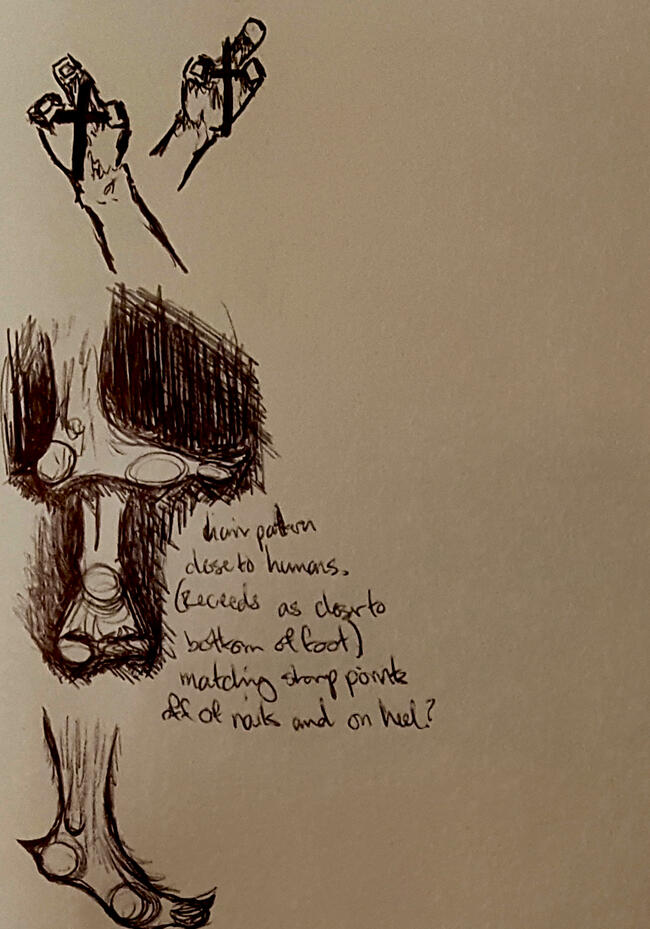 hair pattern
close to humans.
(Receeds as closer to
bottom of foot)
matching sharp points
off of nails and on heel?